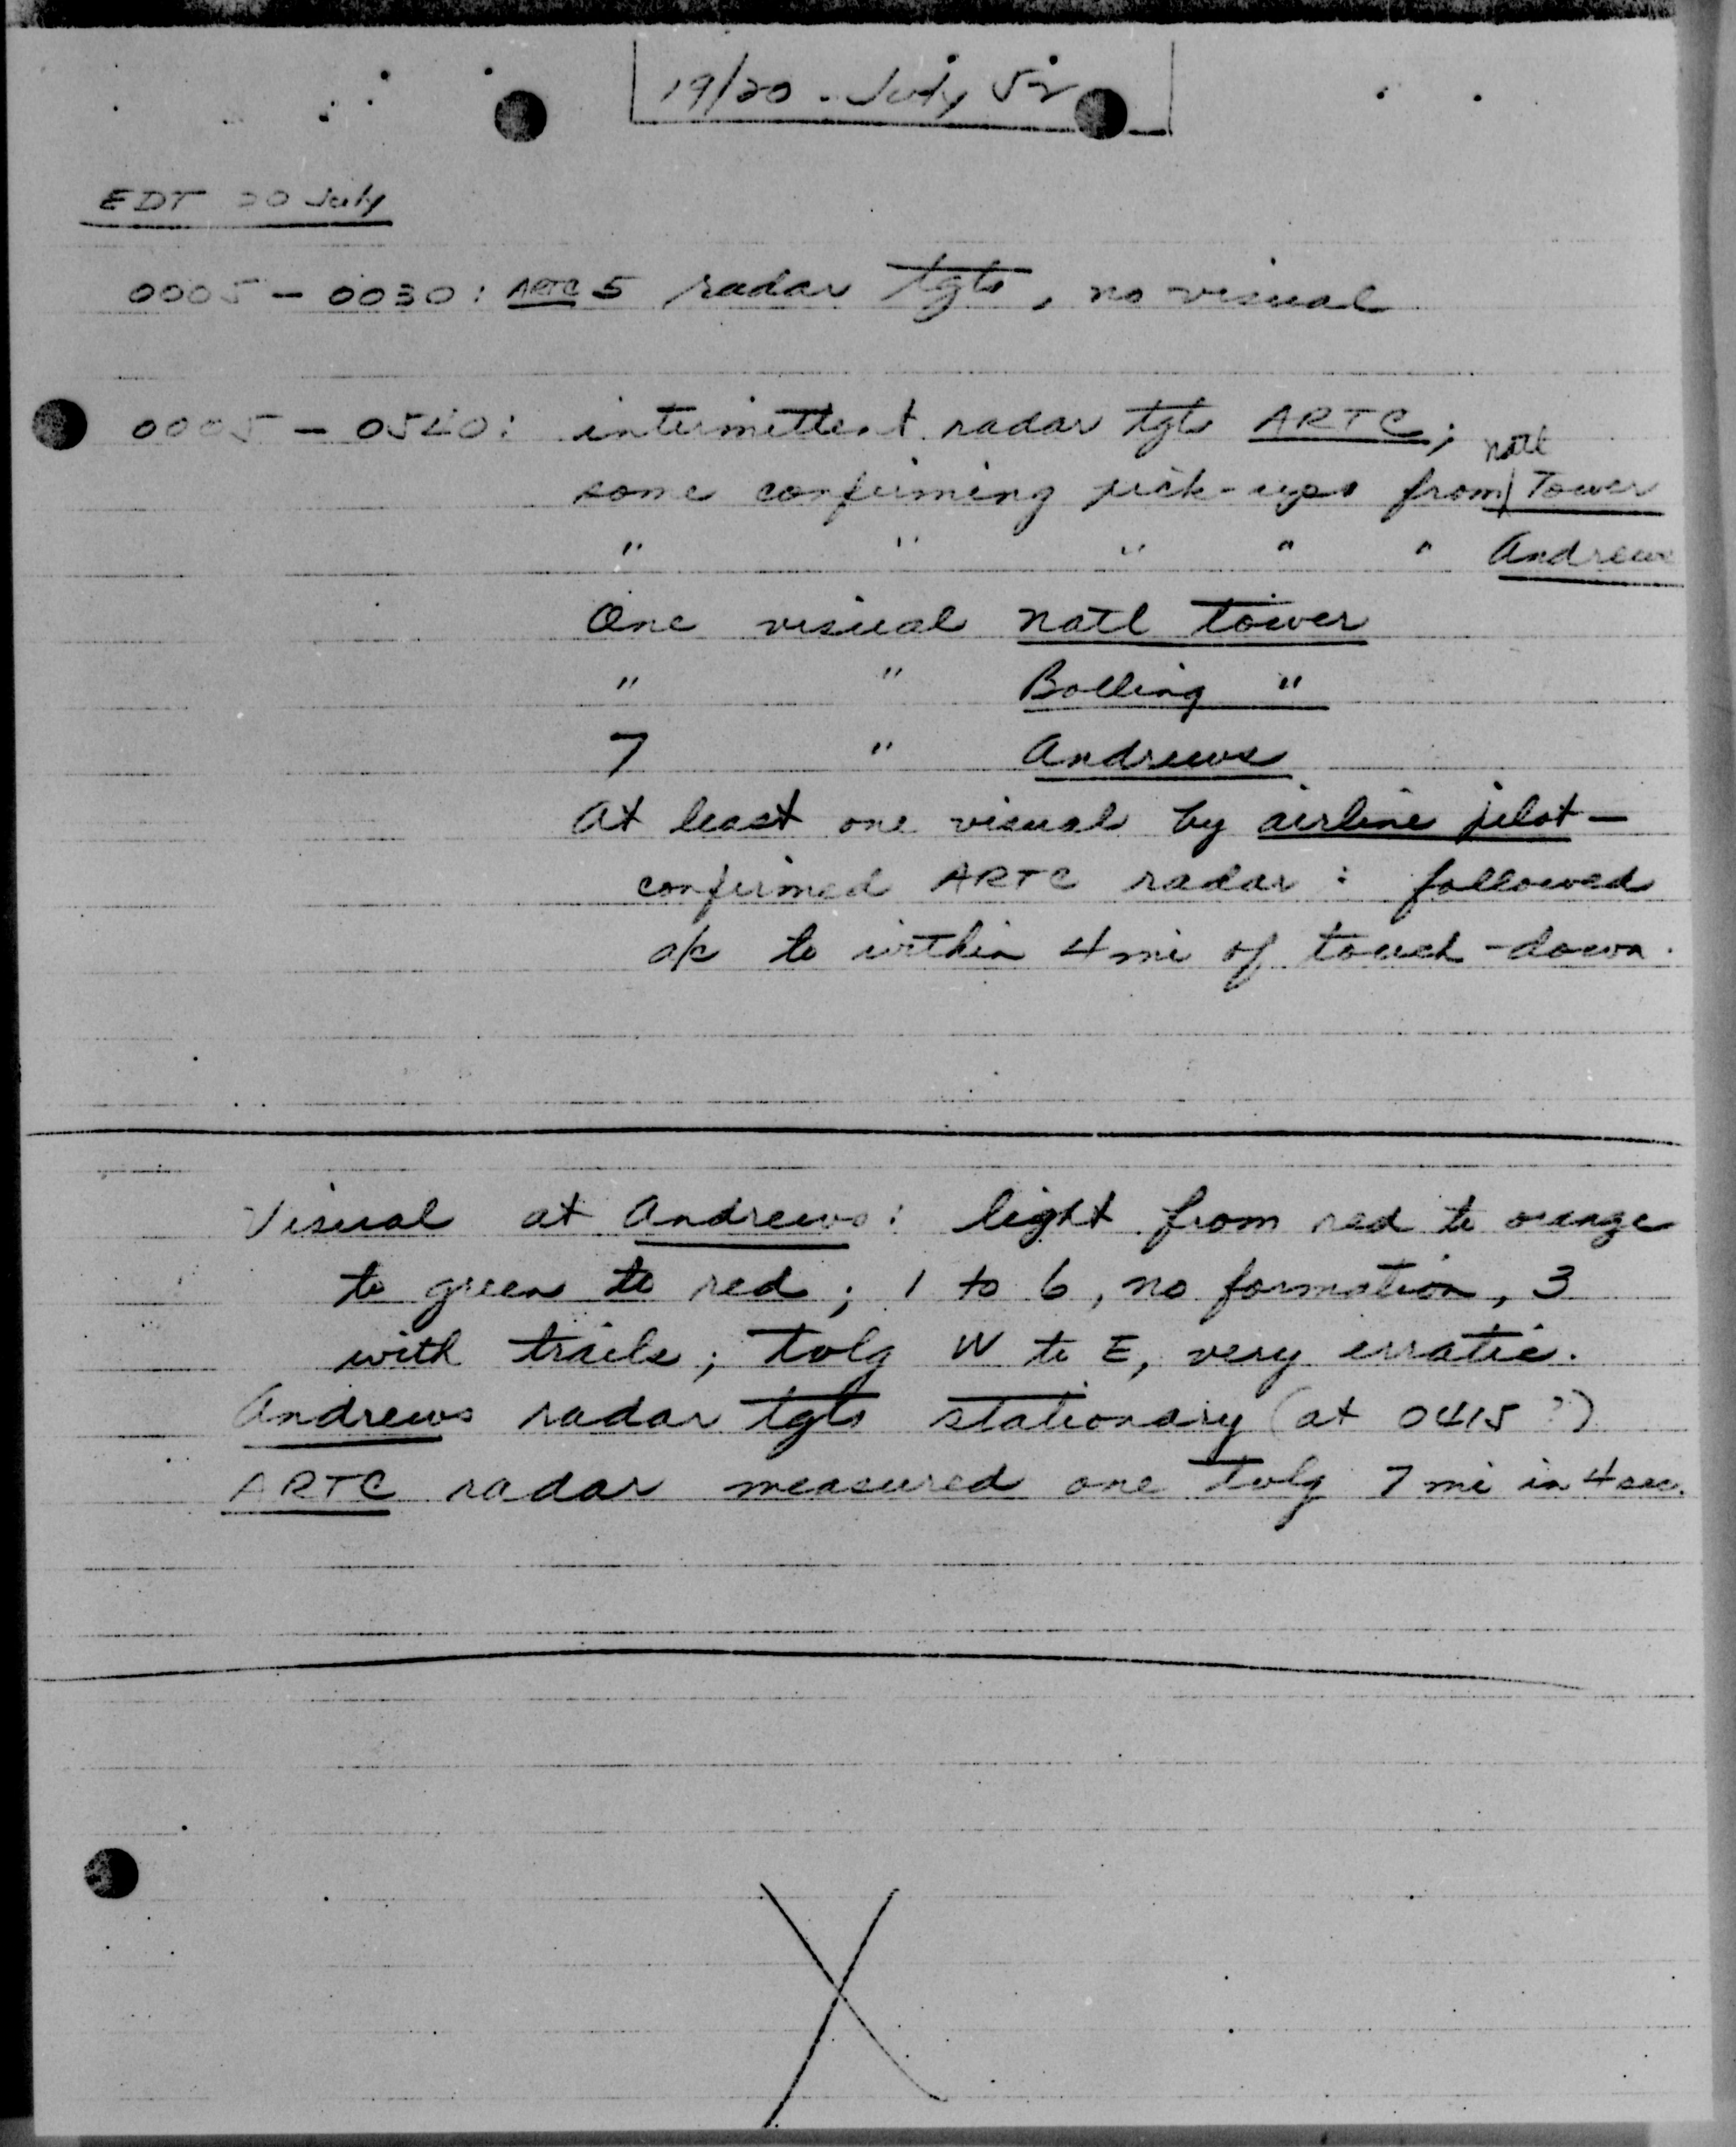 19/20 - July 52
EDT 20 July
0005 - 0030 : ARTC 5 radar tgts, no visual
0005 - 0540 : intermittent radar tgts ARTC;
natl
some confirming pick-ups from Tower
" " " " " Andrews
One visual natl tower
" " Bolling "
7 " Andrews
At least one visual by airline pilot -
confirmed ARTC radar : followed
a/c to within 4 mi of touch-down.
Visual at Andrews : light from red to orange
to green to red ; 1 to 6, no formation, 3
with trails ; tvlg W to E, very erratic.
Andrews radar tgts stationary (at 0415 ?)
ARTC radar measured one tvlg 7 mi in 4 sec.
X